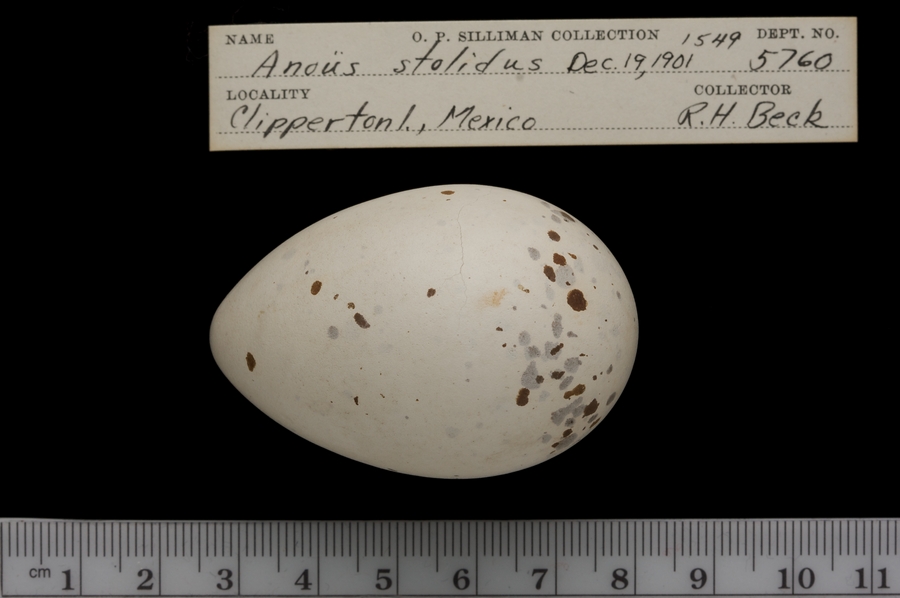 NAME O. P. SILLIMAN COLLECTION 1549 DEPT. NO.
Anoüs stolidus Dec. 19, 1901 5760
LOCALITY COLLECTOR
Clipperton I., Mexico R.H. Beck
cm 1 2 3 4 5 6 7 8 9 10 11